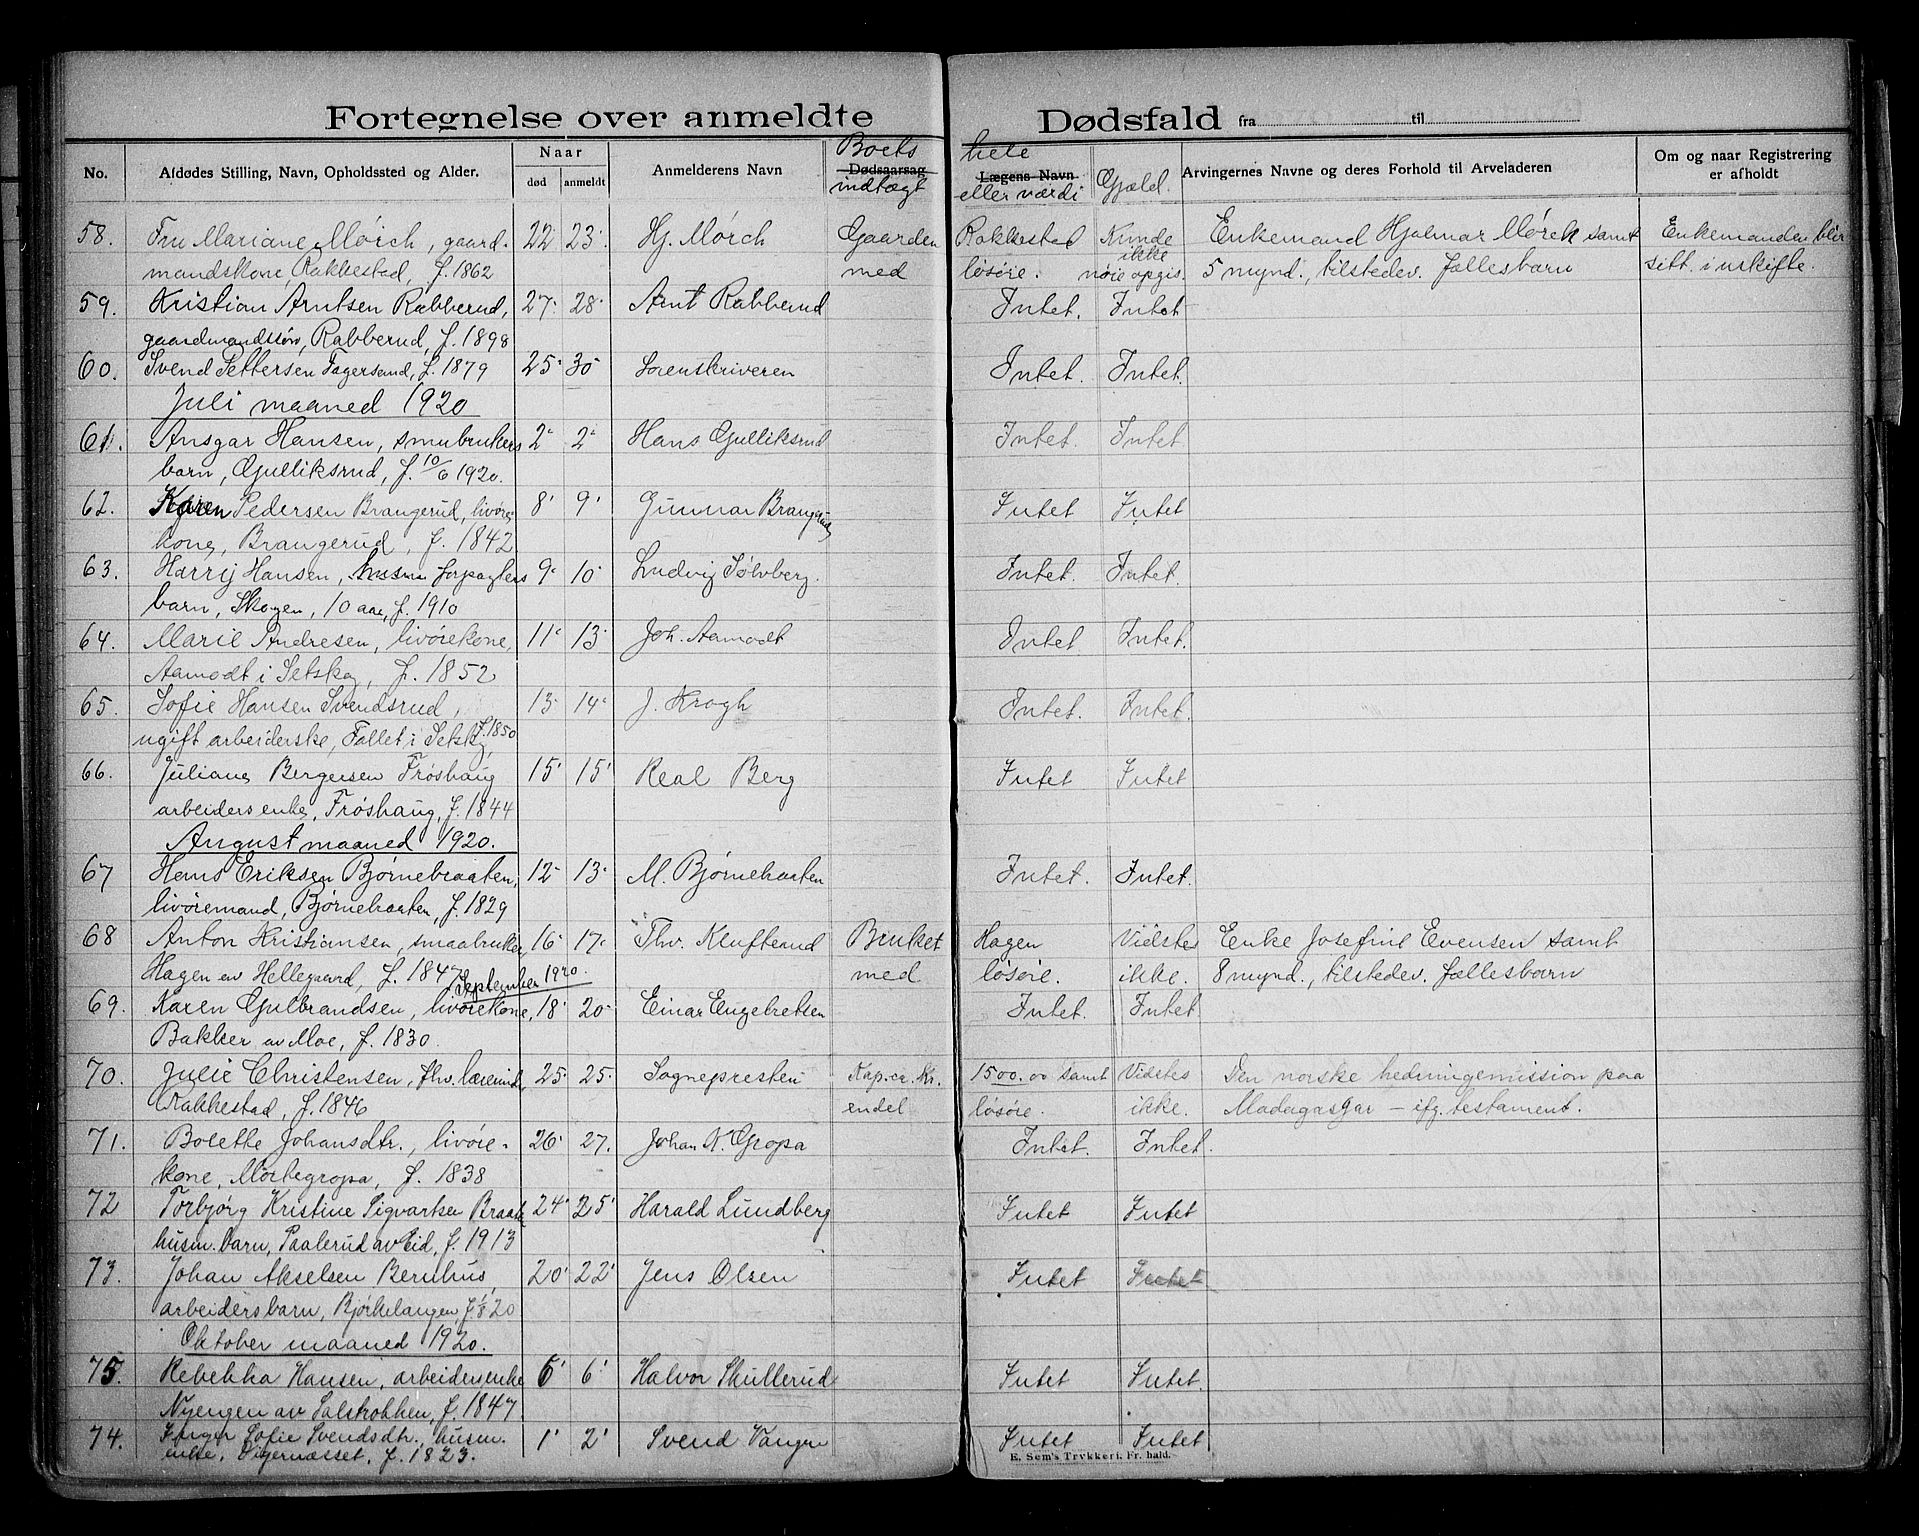 Fortegnelse over anmeldte Dødsfald fra til
No. Afdødes Stilling, Navn, Opholdssted og Alder. Naar død anmeldt Anmelderens Navn Boets Dødsaarsag indtægt hele Lægens Navn eller værdi Gjæld. Arvingernes Navne og deres Forhold til Arveladeren Om og naar Registrering er afholdt
58. Fru Mariane Mørch, gaard- 22 23 Hj. Mørch Gaarden Rakkestad Kunde ikke Enkemand Hjalmar Mørch samt Enkemanden blir
mandskone, Rakkestad, f. 1862 med løsøre. nøie opgis. 5 mynd., tilstedev. fællesbarn sitt. i uskifte.
59. Kristian Arntsen Rabberud, 27 28 Arnt Rabberud Intet. Intet
gaardmandssøn, Rabberud, f. 1898
60. Svend Pettersen Fagersand, f. 1879 25 30 Sorenskriveren Intet. Intet.
Juli maaned 1920
61. Ansgar Hansen, smubrukers 2 2 Hans Gulliksrud Intet. Intet
barn, Gulliksrud, f. 10/6 1920.
62. Karen Pedersen Brangerud, livøre- 8 9 Gunnar Brangerud Intet Intet
kone, Brangerud, f. 1842
63. Harrij Hansen, forpagters 9 10 Ludvig Sølvberg. Intet. Intet.
barn, Skogen, 10 aar, f. 1910
64. Marie Andresen, livørekone, 11 13 Joh. Aamodt Intet Intet.
Aamodt i Setskog, f. 1852
65. Sofie Hansen Svendsrud, 13 14 J. Krogh Intet. Intet.
ugift arbeiderske, Fallet i Setskg, f. 1850
66. Juliane Bergersen Frøshaug 15 15 Real Berg Intet Intet
arbeiders enke, Frøshaug, f. 1844
August maaned 1920.
67 Hans Eriksen Bjørnebraaten, 12 13 M. Bjørnebraaten Intet. Intet.
livøremand, Bjørnebraaten, f. 1829
68 Anton Kristiansen, smaabruker, 16 17 Thv. Klufterud Bruket Hagen Vidstes Enke Josefine Evensen samt
Hagen av Hellegaard, f. 1847 med løsøre. ikke. 8 mynd., tilstedev. fællesbarn
September 1920.
69. Karen Gulbrandsen, livørekone, 18 20 Einar Engebretsen Intet. Intet
Bakker av Moe, f. 1830.
70. Julie Christensen, fhv. lærerinde 25 25 Sognepresten Kap. cr. Kr. 1500.00 samt Vidstes Den norske hedningemission paa
Rakkestad, f. 1846 endel løsøre. ikke. Madagasgar – ifg. testament.
71. Bolette Johansdtr., livøre- 26 27. Johan N. Gropa Intet. Intet.
kone, Mørkegropa, f. 1838
72 Torbjørg Kristine Sigvartsen Braate 24 25 Harald Lundberg Intet Intet
husm. barn, Paalerud av Eid, f. 1913
73. Johan Akselsen Bernhus, 20 22 Jens Olsen Intet Intet
arbeidersbarn, Bjørkelangen, f. 1/8 20
Oktober maaned 1920.
75. Rebekka Hansen, arbeidersenke 5 6 Halvor Skullerud Intet Intet.
Nyengen av Salskokken, f. 1847
74. Inger Sofie Svendsdtr. husm. 1 2 Svend Vangen Intet Intet
enke, f. 1823.
E. Sem's Trykkeri, Fr. hald.